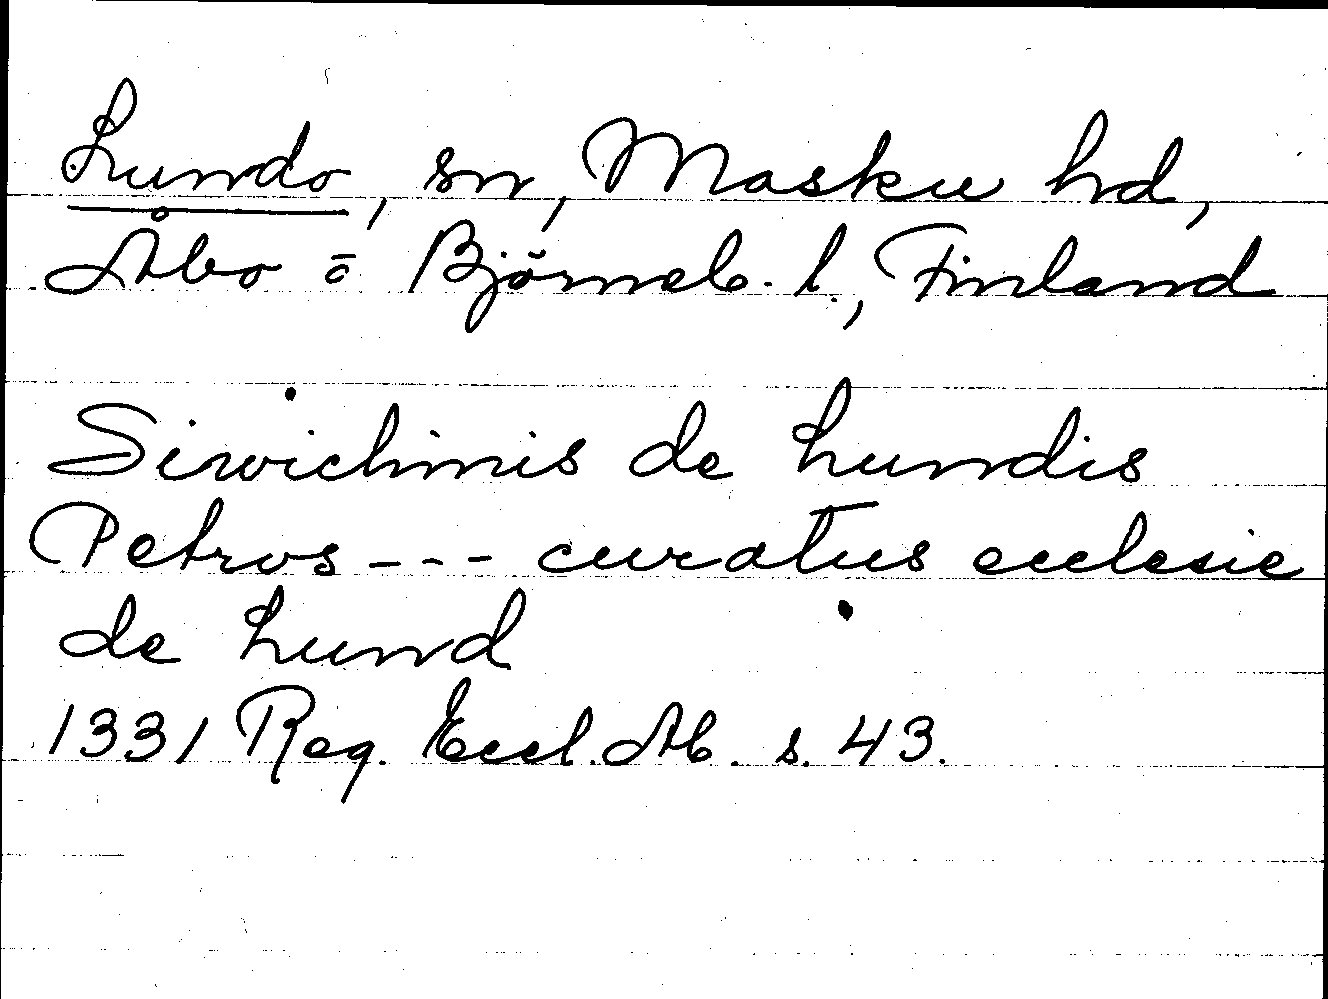 Lundo, sn, Masku hd,
Åbo o Björneb. l., Finland
Sirvichinis de Lundis
Petrus --- curatus ecclesie
de Lund
1331 Reg. Eccl. Ab. s. 43.